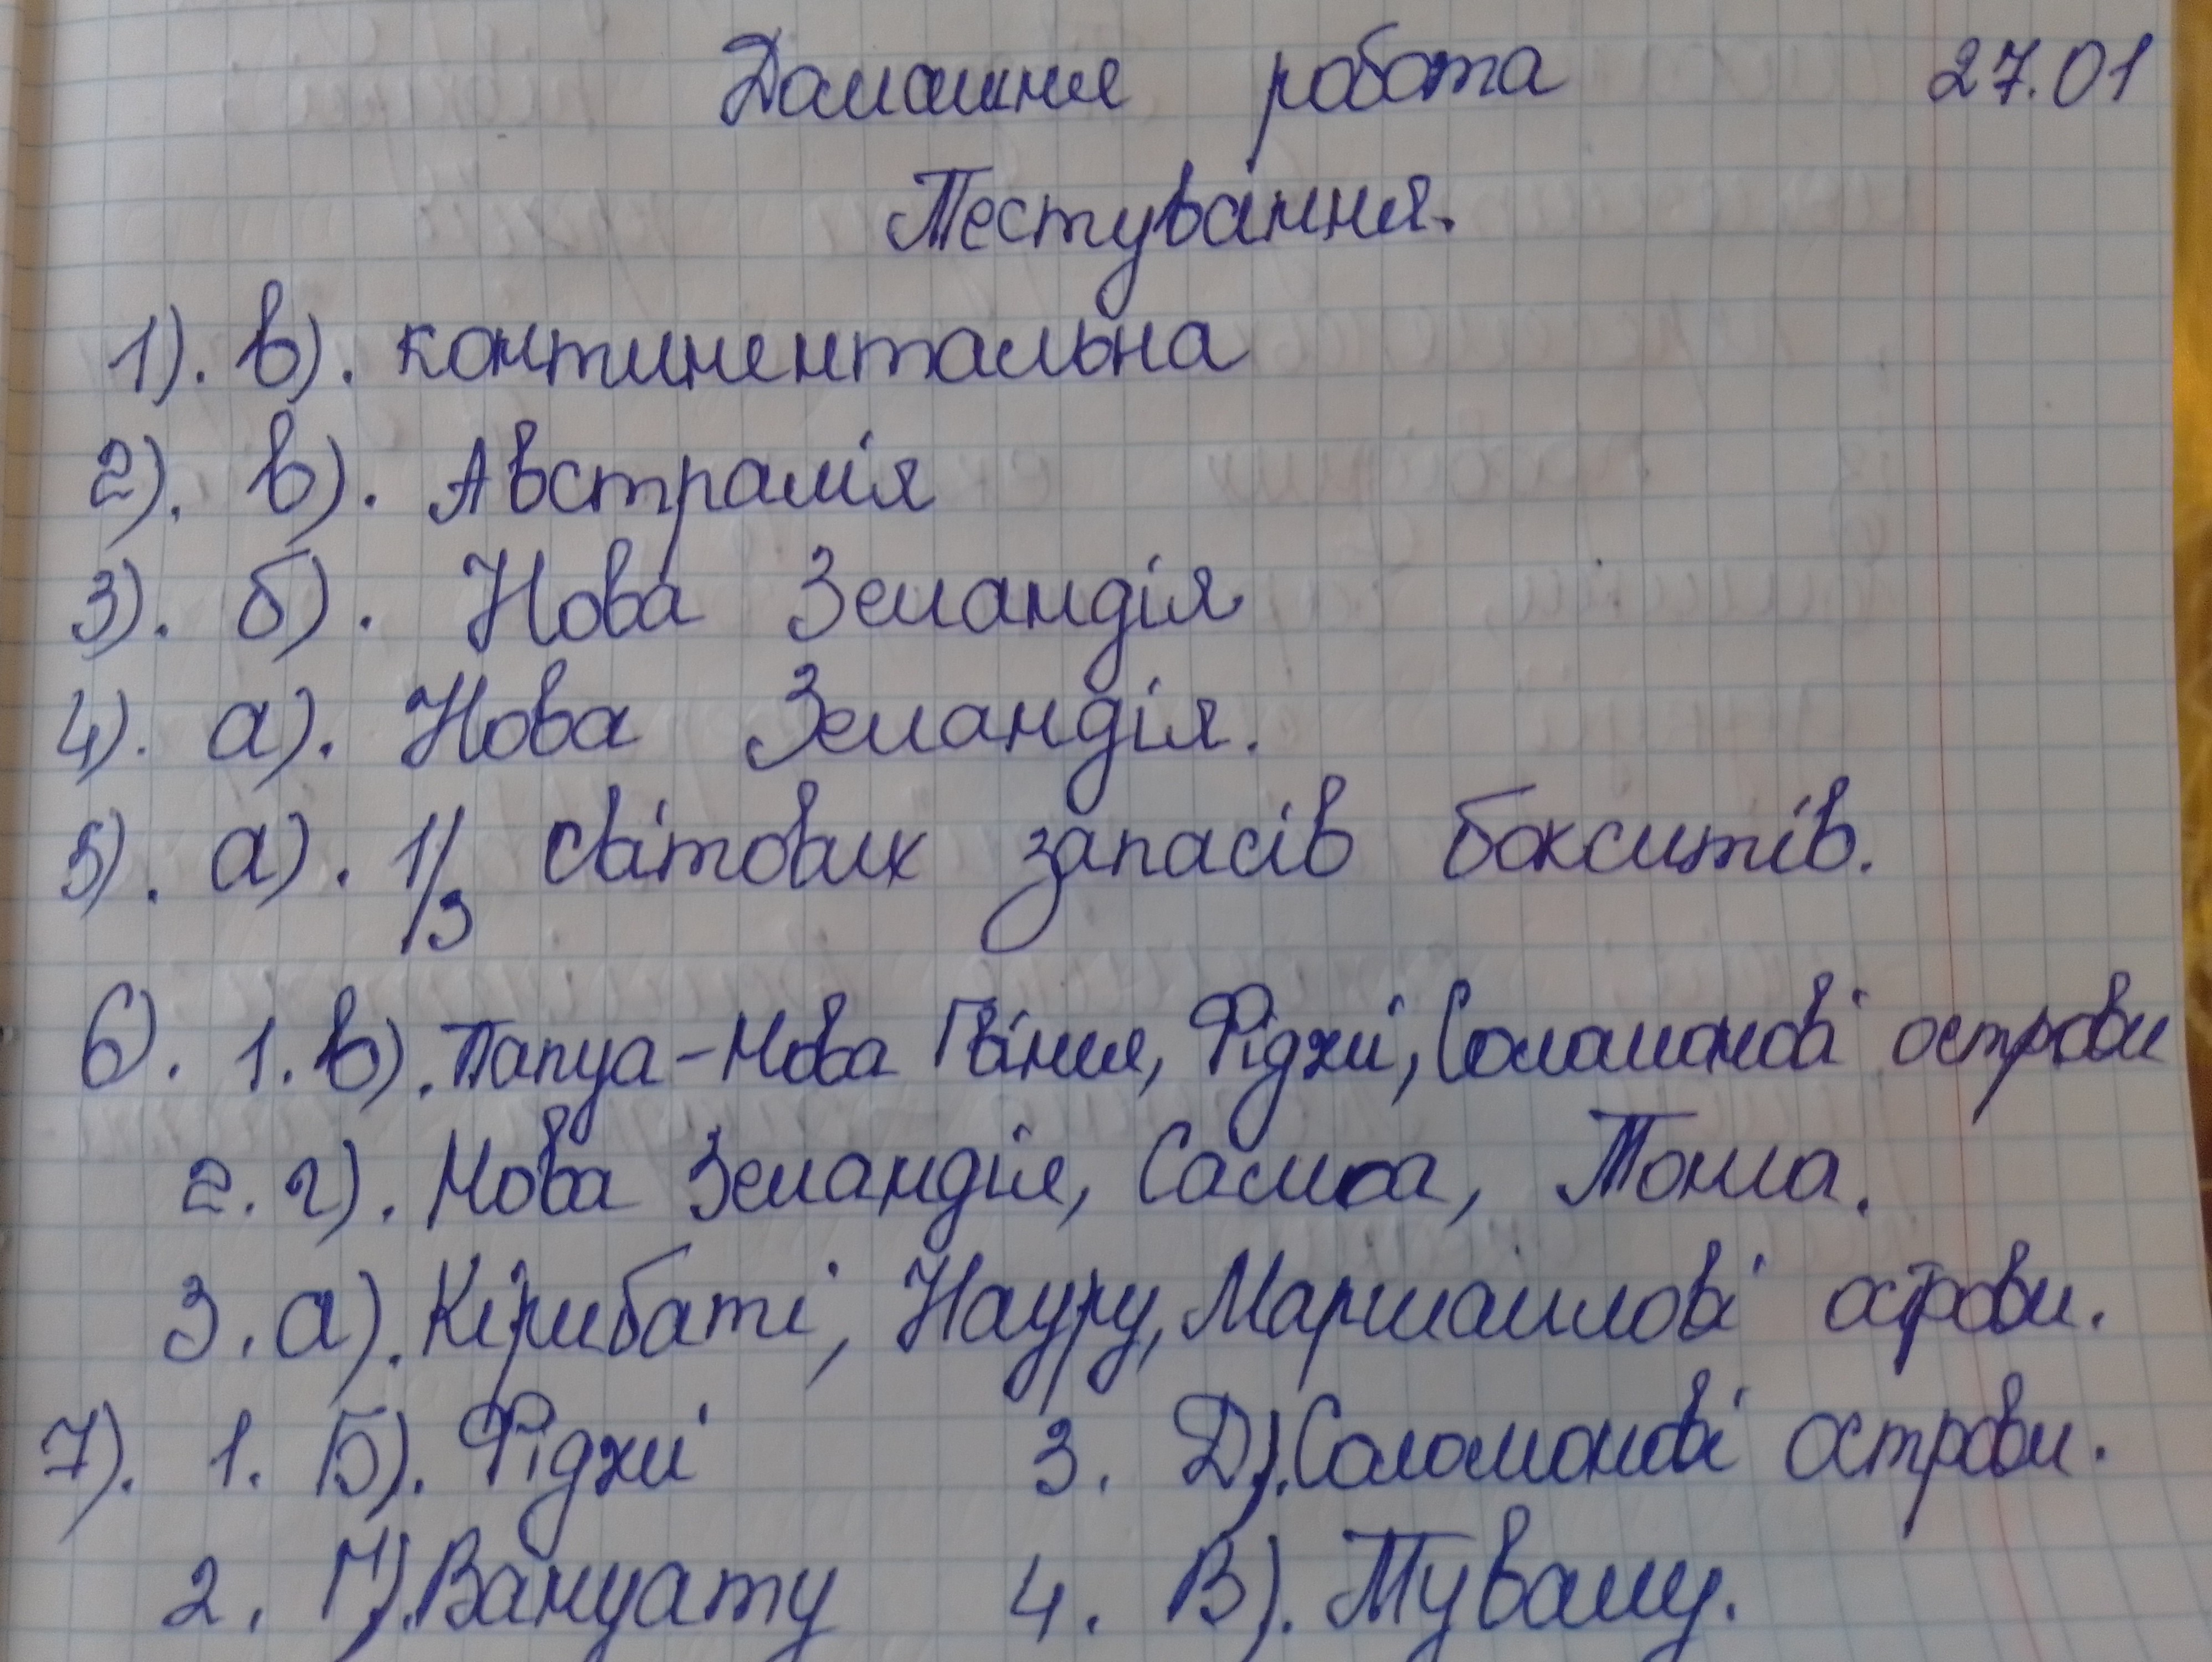 Домашня робота 27.01
Тестування.
1). в). континентальна
2). в). Австралія
3). б). Нова Зеландія
4). а). Нова Зеландія.
5). а). 1/3 світових запасів бокситів.
6). 1. в). Папуа-Нова Гвінея, Фіджі, Соломонові острови
2. г). Нова Зеландія, Самоа, Тонга.
3. а). Кірибаті, Науру, Маршаллові острови.
7). 1. Б). Фіджі 3. Д). Соломонові острови.
2. Г). Вануату 4. В). Тувалу.